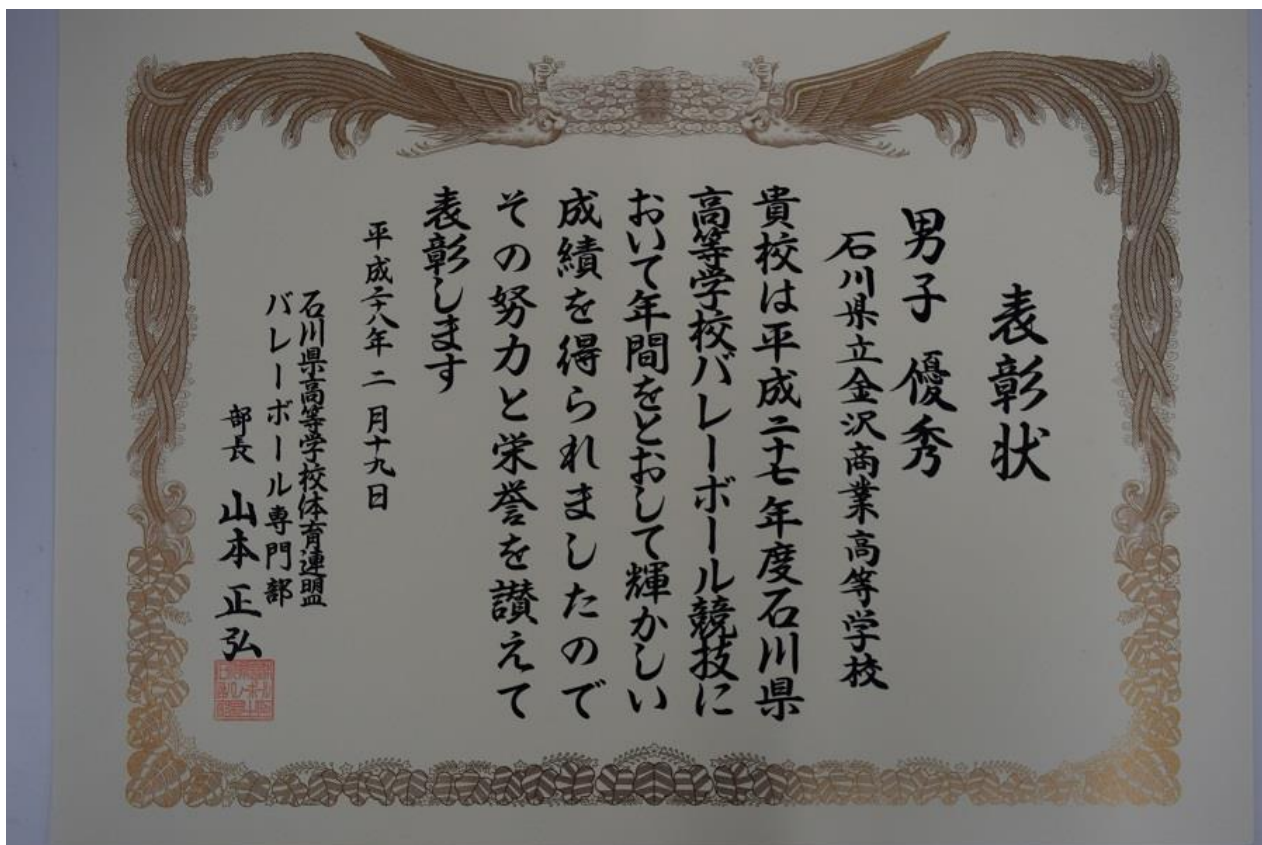 表彰状
男子 優秀
石川県立金沢商業高等学校
貴校は平成二十七年度石川県
高等学校バレーボール競技に
おいて年間をとおして輝かしい
成績を得られましたので
その努力と栄誉を讃えて
表彰します
平成二十八年 二月十九日
石川県高等学校体育連盟
バレーボール専門部
部長 山本正弘